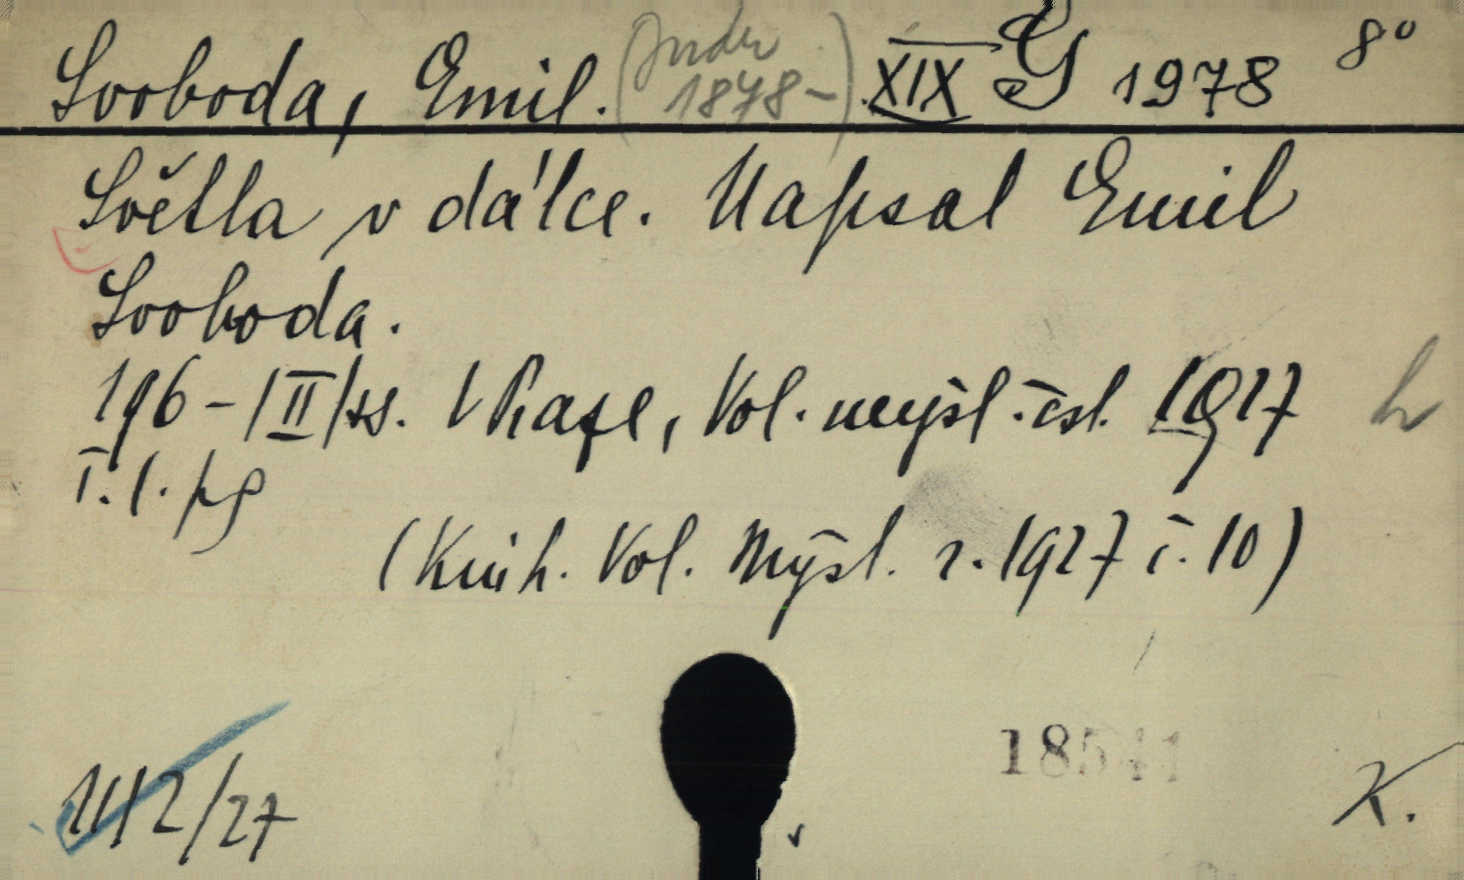 Svoboda, Emil. (Juder 1878-) XIX G 1978 8°
Světla v dálce. Napsal Emil
Svoboda.
196-|II|ss. V Praze, Vol. myšl. čsl. 1927
(Knih. Vol. Mýšl. r. 1927 č. 10)
18541
K.